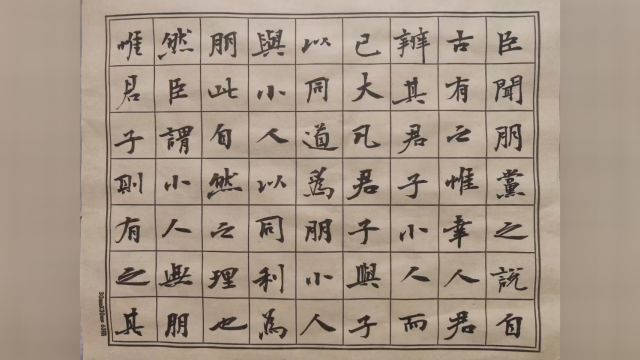 臣聞朋黨之說自
古有之惟幸人君
辨其君子小人而
已大凡君子與子
以同道為朋小人
與小人以同利為
朋此自然之理也
然臣謂小人無朋
惟君子則有之其